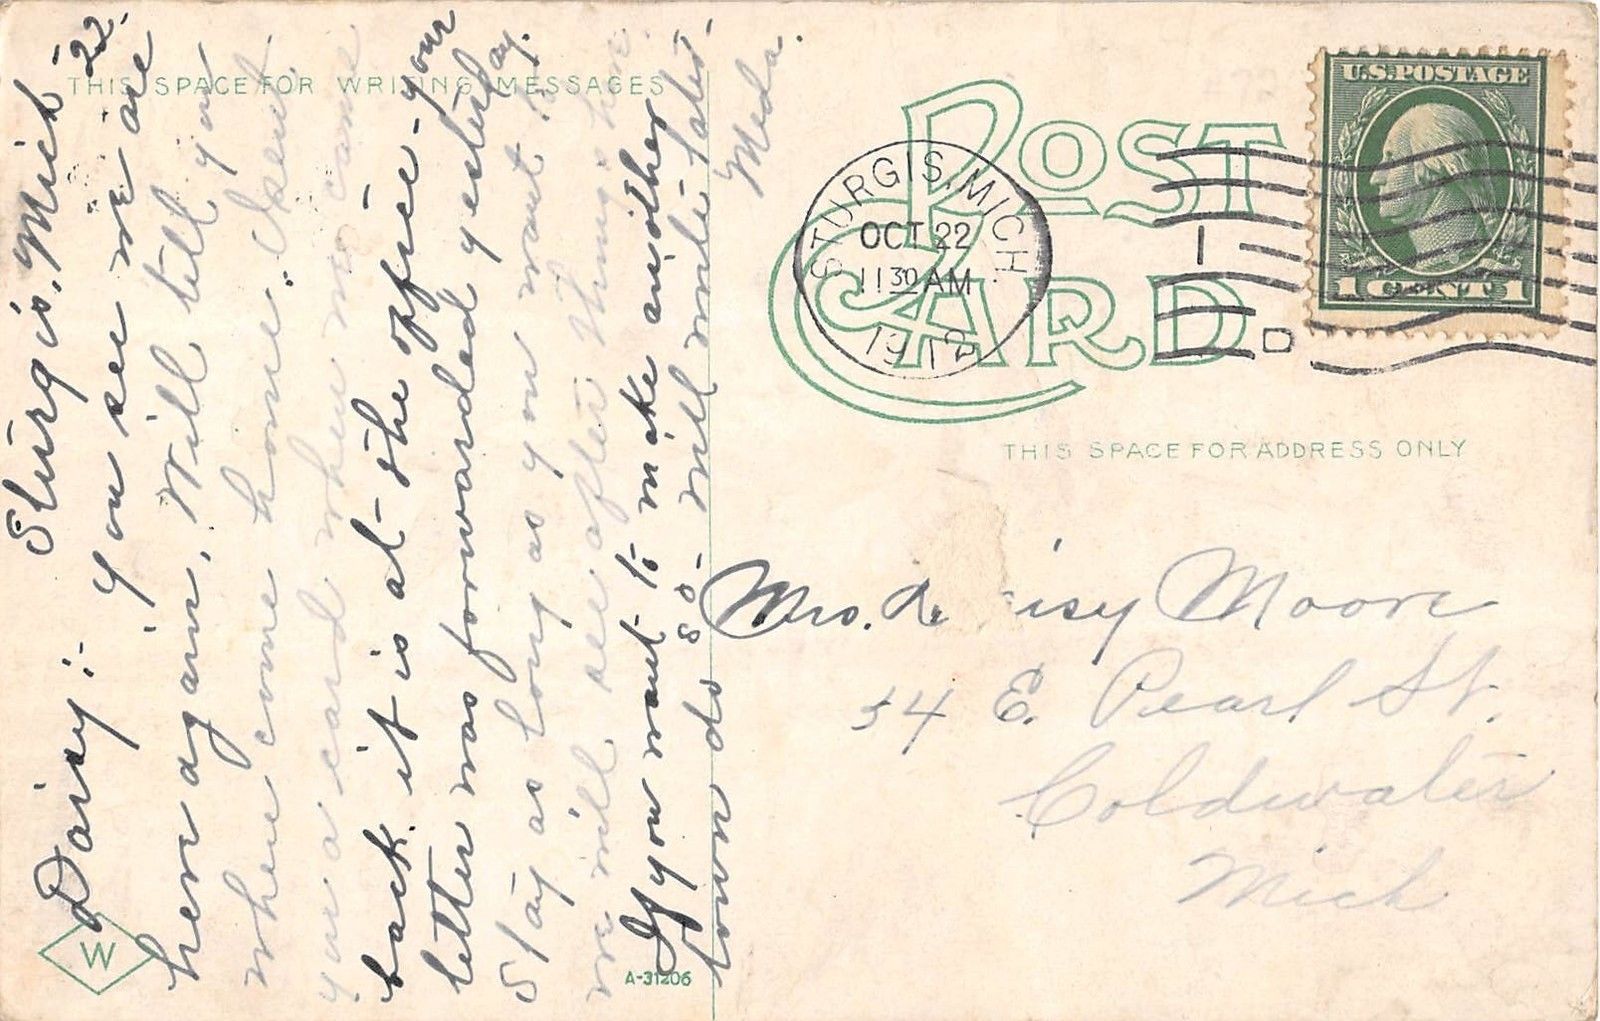 THIS SPACE FOR WRITING MESSAGES
Sturgis, Mich - 22 -
Daisy :-
you see we are
here again. Will tell you
when come home. I sent
you a card when we came
back. it is at the office - your
letter was forwarded yesterday.
Stay as long as you want to
we will see after things here.
If you want to make another
town do so - will write later -
Meda.
W
A-31206
POST
CARD
STURGIS, MICH.
OCT 22
11 30 AM
1912
1
D
U.S. POSTAGE
1 CENT 1
THIS SPACE FOR ADDRESS ONLY
Mrs. isy Moore
54 E. Pearl St.
Coldwater
Mich